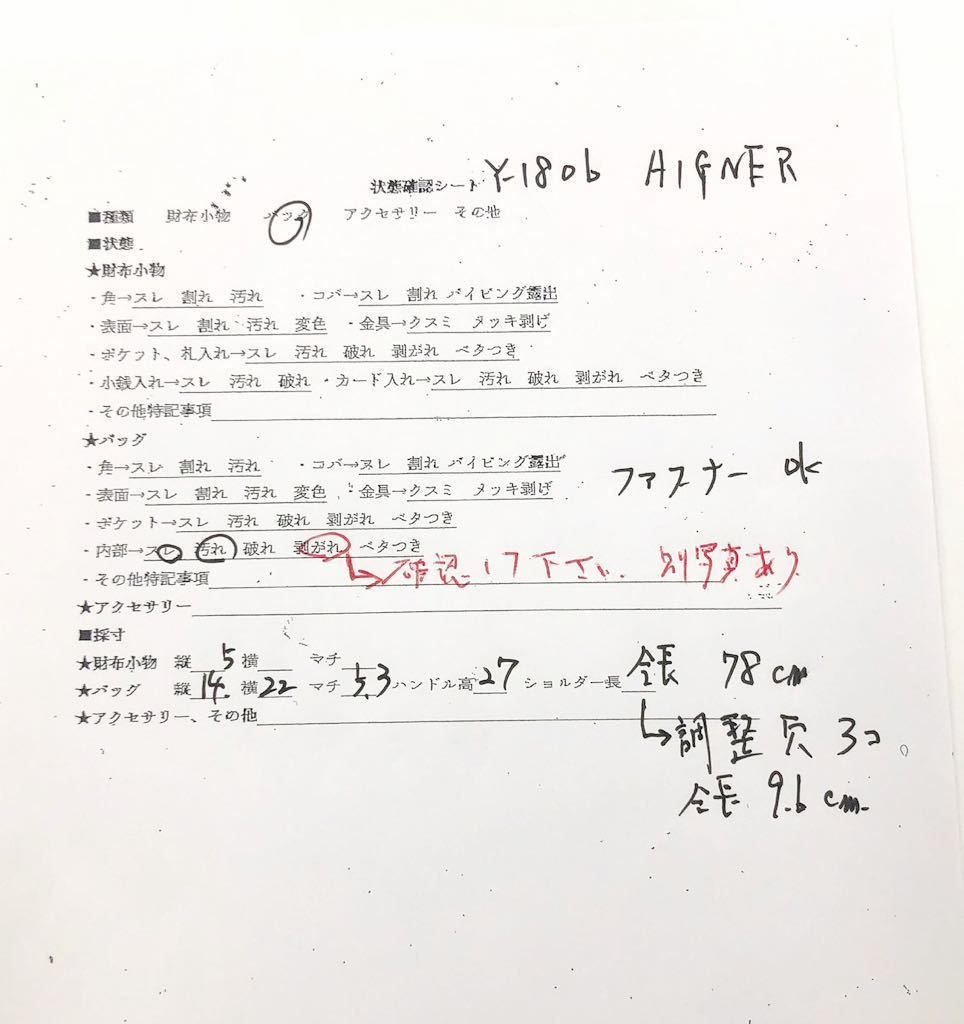 状態確認シート Y-1806 HIGNER
■種類 財布小物 バッグ アクセサリー その他
■状態
★財布小物
・角→スレ 割れ 汚れ ・コバ→スレ 割れ パイピング露出
・表面→スレ 割れ 汚れ 変色 ・金具→クスミ メッキ剥げ
・ポケット、札入れ→スレ 汚れ 破れ 剥がれ ベタつき
・小銭入れ→スレ 汚れ 破れ ・カード入れ→スレ 汚れ 破れ 剥がれ ベタつき
・その他特記事項
★バッグ
・角→スレ 割れ 汚れ ・コバ→スレ 割れ パイピング露出
・表面→スレ 割れ 汚れ 変色 ・金具→クスミ メッキ剥げ
ファスナー ok
・ポケット→スレ 汚れ 破れ 剥がれ ベタつき
・内部→スレ 汚れ 破れ 剥がれ ベタつき
→確認して下さい 別写真あり
・その他特記事項
★アクセサリー
■採寸
★財布小物 縦 5 横 マチ
★バッグ 縦 14. 横 22 マチ 5.3 ハンドル高 27 ショルダー長 全長 78cm
→調整穴 3コ
★アクセサリー、その他
全長 9.6cm.